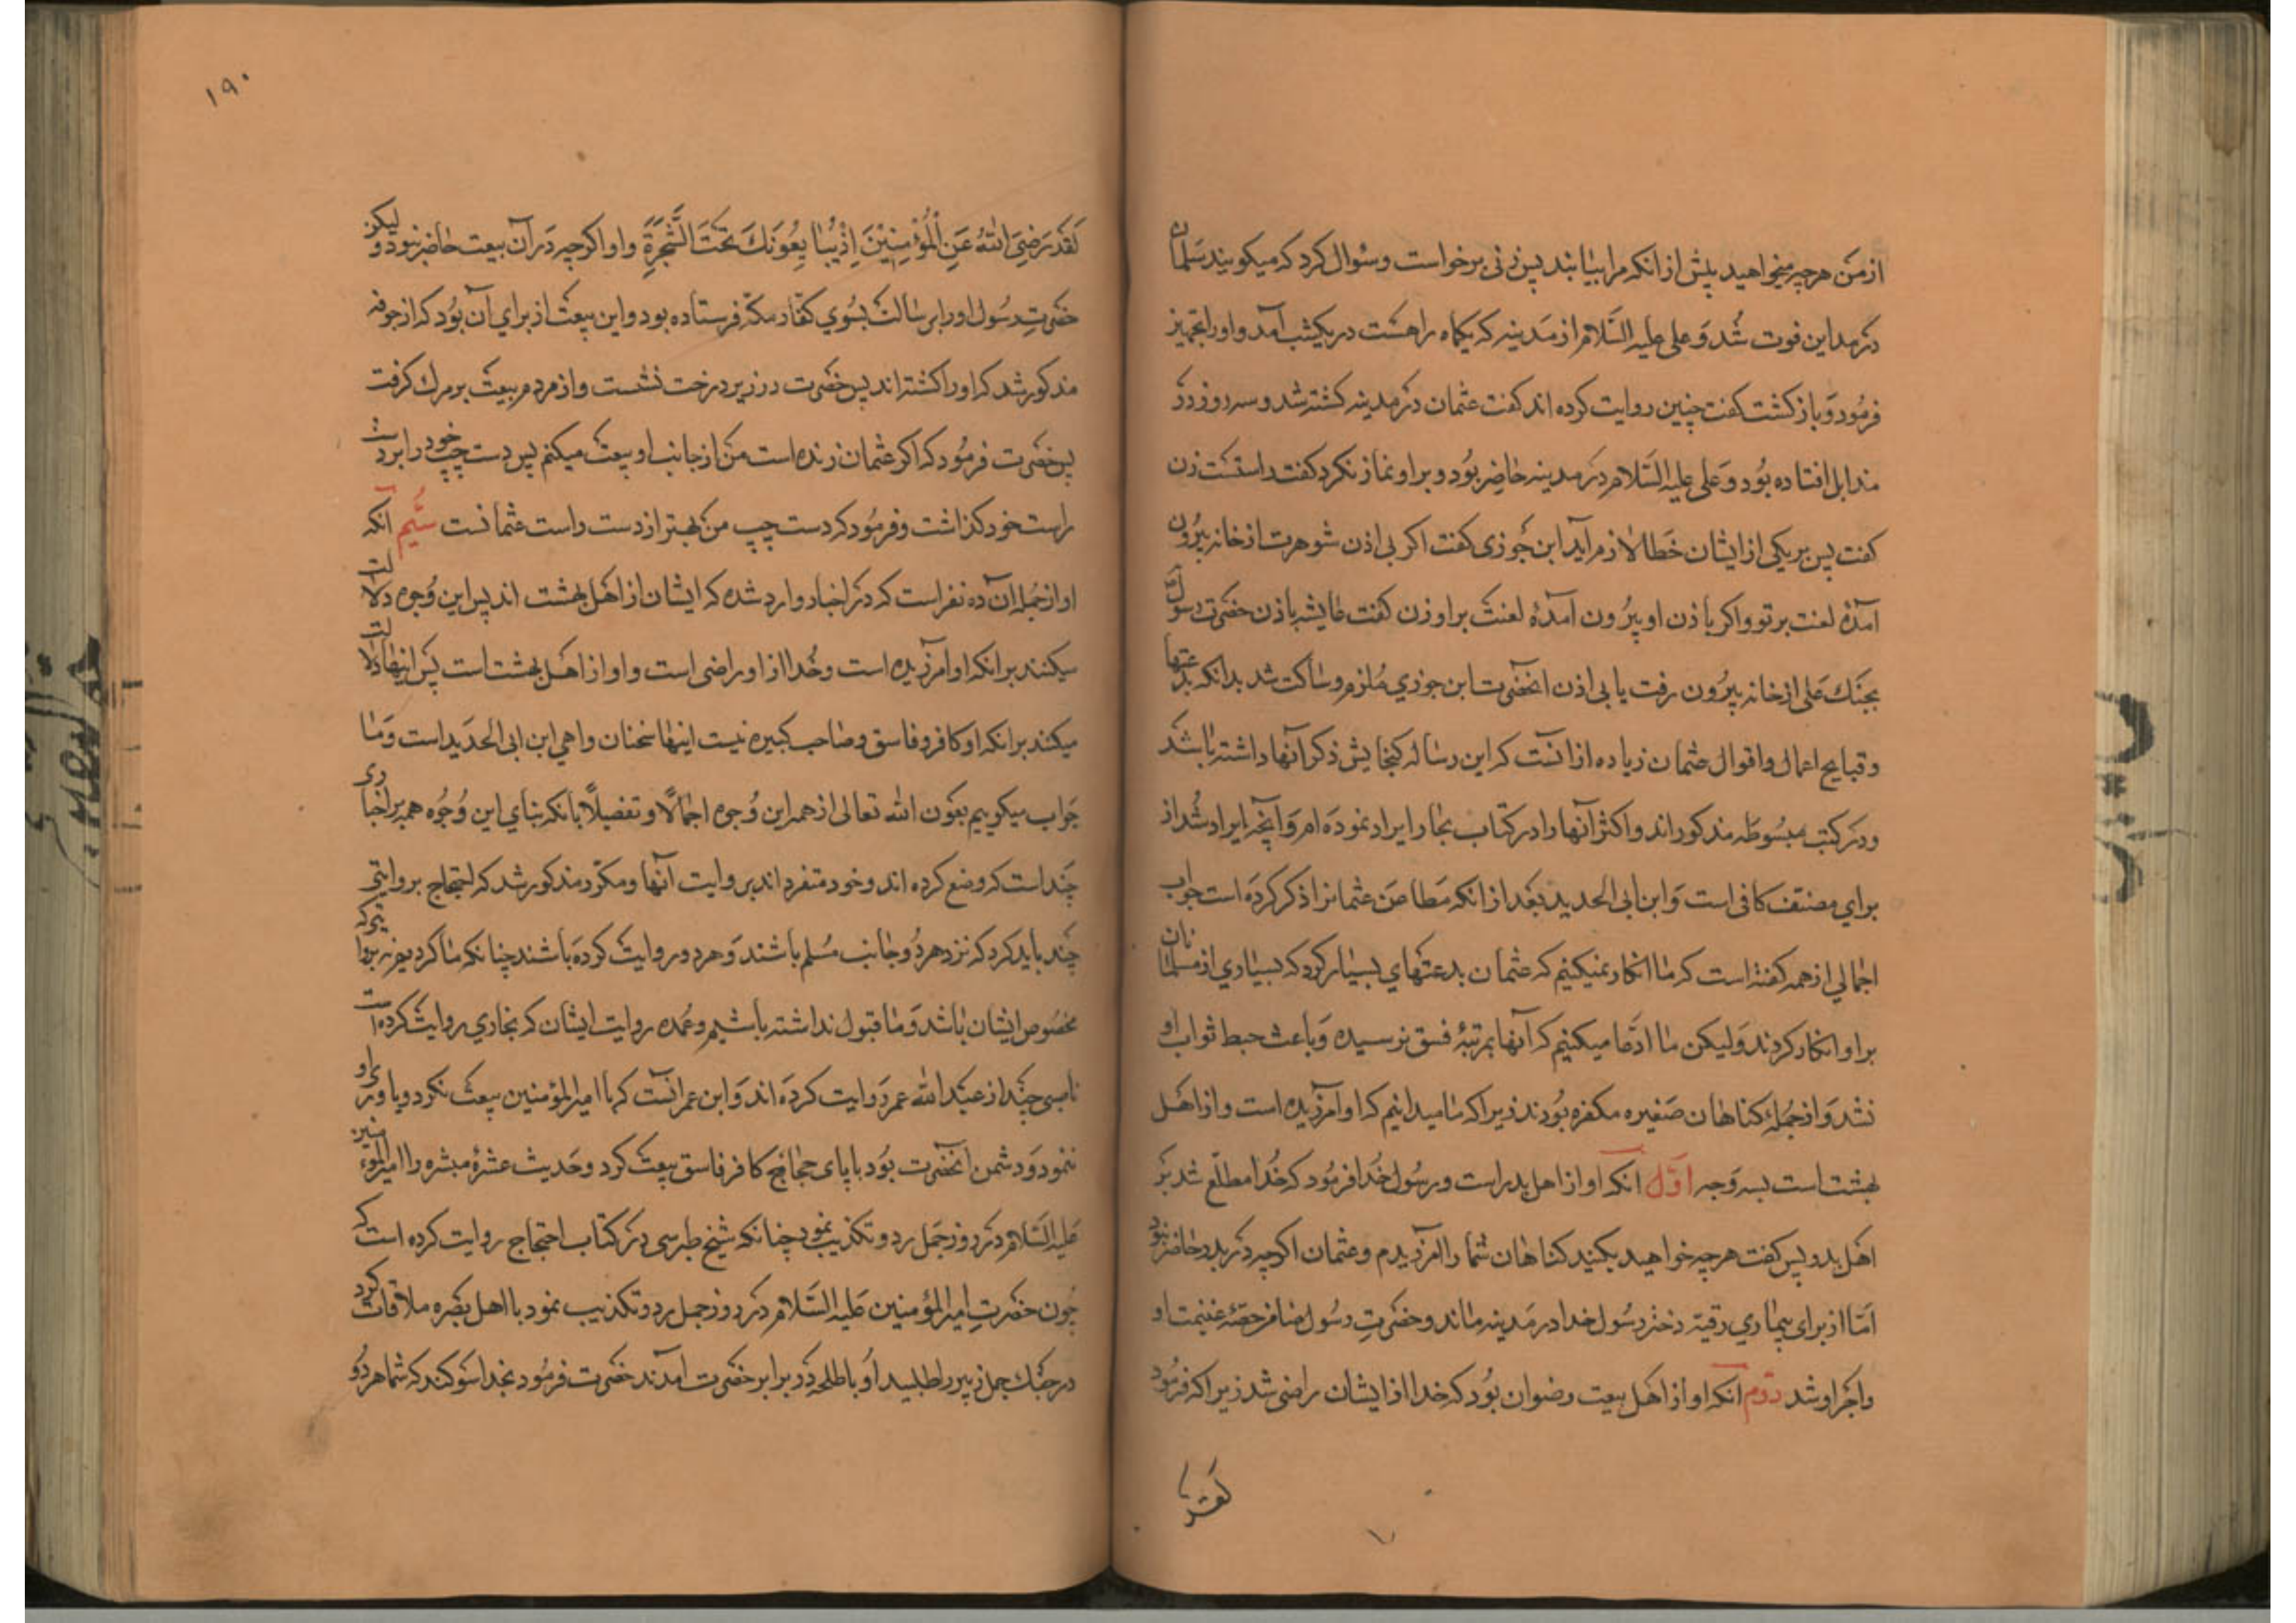 از من هرچه میخواهید پیش از انکه مرا نیابید پس زنی برخواست و سؤال کرد که میکویند سَلمان
در مداین فوت شُد وَ علی علیه السَّلام از مَدینه که یکماه راهست در یکشب آمد و او را تجهیز
فرمُود وَ بازکشت کفت چنین روایت کرده اند کفت عثمان در مدینه کشته شد و سه روز در
مزابل افتاده بُود وَ علی علیه السَّلام در مدینه حاضِر بُود و بر او نماز نکرد کفت راستست زن
کفت پس بر یکی از ایشان خَطا لازم آید ابن جَوزی کفت اکر بی اذن شوهرت از خانه بیرُون
آمدهٔ لعنت بر تو و اکر با ذن او بیرُون آمدهٔ لعنت بر او زن کفت عایشه باذن حضرت رسُول
بجنَك عَلی از خانه بیرُون رفت یا بی اذن انحضرت ابن جوزی مُلزم و ساکت شد بدانکه بدعتها
و قبایح اعمال و اقوال عثمان زیاده از انست که این رساله کنجایش ذکر آنها داشته باشد
و در کتب مبسُوطه مذکور اند و اکثر آنها را در کتاب بحار ایراد نموده ام وَ آنچه ایراد شُد از
برای مصنف کافی است وَ ابن ابی الحدید بعَد از انکه مَطاعن عثمانرا ذکر کرده است جواب
اجمالی از همه کفته است که ما انکار نمیکنیم که عثمان بدعتهای بسیار کرد که بسیاری از مسلمانان
بر او انکار کردند وَلیکن ما ادّعا میکنیم که آنها بمرتبهٔ فسق نرسیده وَ باعث حبط ثواب او
نشد وَ از جُملهٔ کناهان صَغیره مکفره بُودند زیرا که ما میدانیم که او آمرزیده است و از اهَل
بهشت است بسه وَجه اوّل انکه او از اهل بدر است و رسُول خُدا فرمُود که خُدا مطلّع شد بر
اهَل بدر پس کفت هرچه خواهید بکنید کناهان شما را آمرزیدم و عثمان اکرچه در بدر حاضر نبود
امّا از برای بیماری رقیّه دختر رسُول خدا در مَدینه ماند و حضرتِ رسُول ضامن حصّهٔ غنیمت او
و اجر او شد دوّم انکه او از اهَل بیعت رضوان بُود که خدا از ایشان راضی شد زیرا که فرمُود
لقد
۱۹۰
لَقَدْ رَضِیَ اللهُ عَنِ المُؤْمِنِیْنَ اِذْ یُبَایِعُوْنَكَ تَحْتَ الشَّجَرَةِ و او اکرچه دَر آن بیعت حاضر نبود و لیکن
حضرتِ رسُول او را برسالت بسُوی کفار مکّه فرستاده بود و این بیعت از برای آن بُود که از جوف
مذکور شد که او را کشته اند پس حضرت در زیر درخت نشست و از مردم بیعت بر مرك کرفت
پس حضرت فرمُود که اکر عثمان زنده است من از جانب او بیعت میکنم پس دست چپ خود را بر دست
راست خود کذاشت و فرمُود که دست چپ من بهتر از دست راست عثمانست سیُّم انکه
او از جُمله ان ده نفر است که در اخبار وارد شده که ایشان از اهَل بهشت اند پس این وُجوه دلالت
میکنند بر انکه او آمرزیده است و خُدا از او راضی است و او از اهَل بهشت است پس اینها دلالت
میکند بر انکه او کافر و فاسق و صاحب کبیره نیست اینها سخنان واهی ابن ابی الحدید است وَ ما
جَواب میکوییم بعَون الله تعالی از همه این وُجوه اجمالاً و تفصیلاً بانکه بنای این وُجُوه همه بر اخبا ری
چند است که وضع کرده اند و خود متفرد اند بروایت آنها و مکرّر مذکور شد که احتجاج بروایتی
چند باید کرد که نزد هر دُو جانب مُسلم باشند وَ هر دو روایت کرده باشند چنانکه ما کردیم نه بروایتی که
مخصُوص ایشان باشد وَ ما قبول نداشته باشیم و عُمده روایت ایشان که بخاری روایت کرده است
ناصبی چند از عبد الله عمر روایت کرده اند وَ ابن عمر انست که با امیر المؤمنین بیعت نکرد و یاوری او
ننمود وَ دشمن انحضرت بُود با پای حجاج کافر فاسق بیعت کرد و حَدیث عشرهٔ مبشره را امیر المؤمنین
عَلیه السَّلام در رُوز جَمل رد و تکذیب نمود چنانکه شیخ طبرسی در کتاب احتجاج روایت کرده است که
چُون حضرتِ امیر المؤمنین عَلیه السَّلام در روز جمل رد و تکذیب نمود با اهل بصره ملاقات کرد
در جنك جمل زبیر را طلبید او با طلحه در برابر حضرت آمدند حضرت فرمُود بخدا سَوکند که شما هر دُو